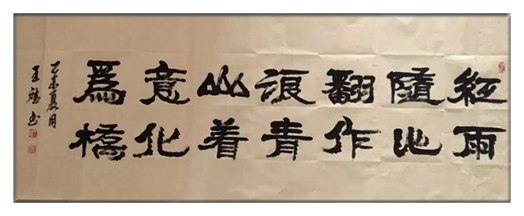 紅雨
隨心
翻作
浪青
山着
意化
爲橋
乙未夏月
王 书